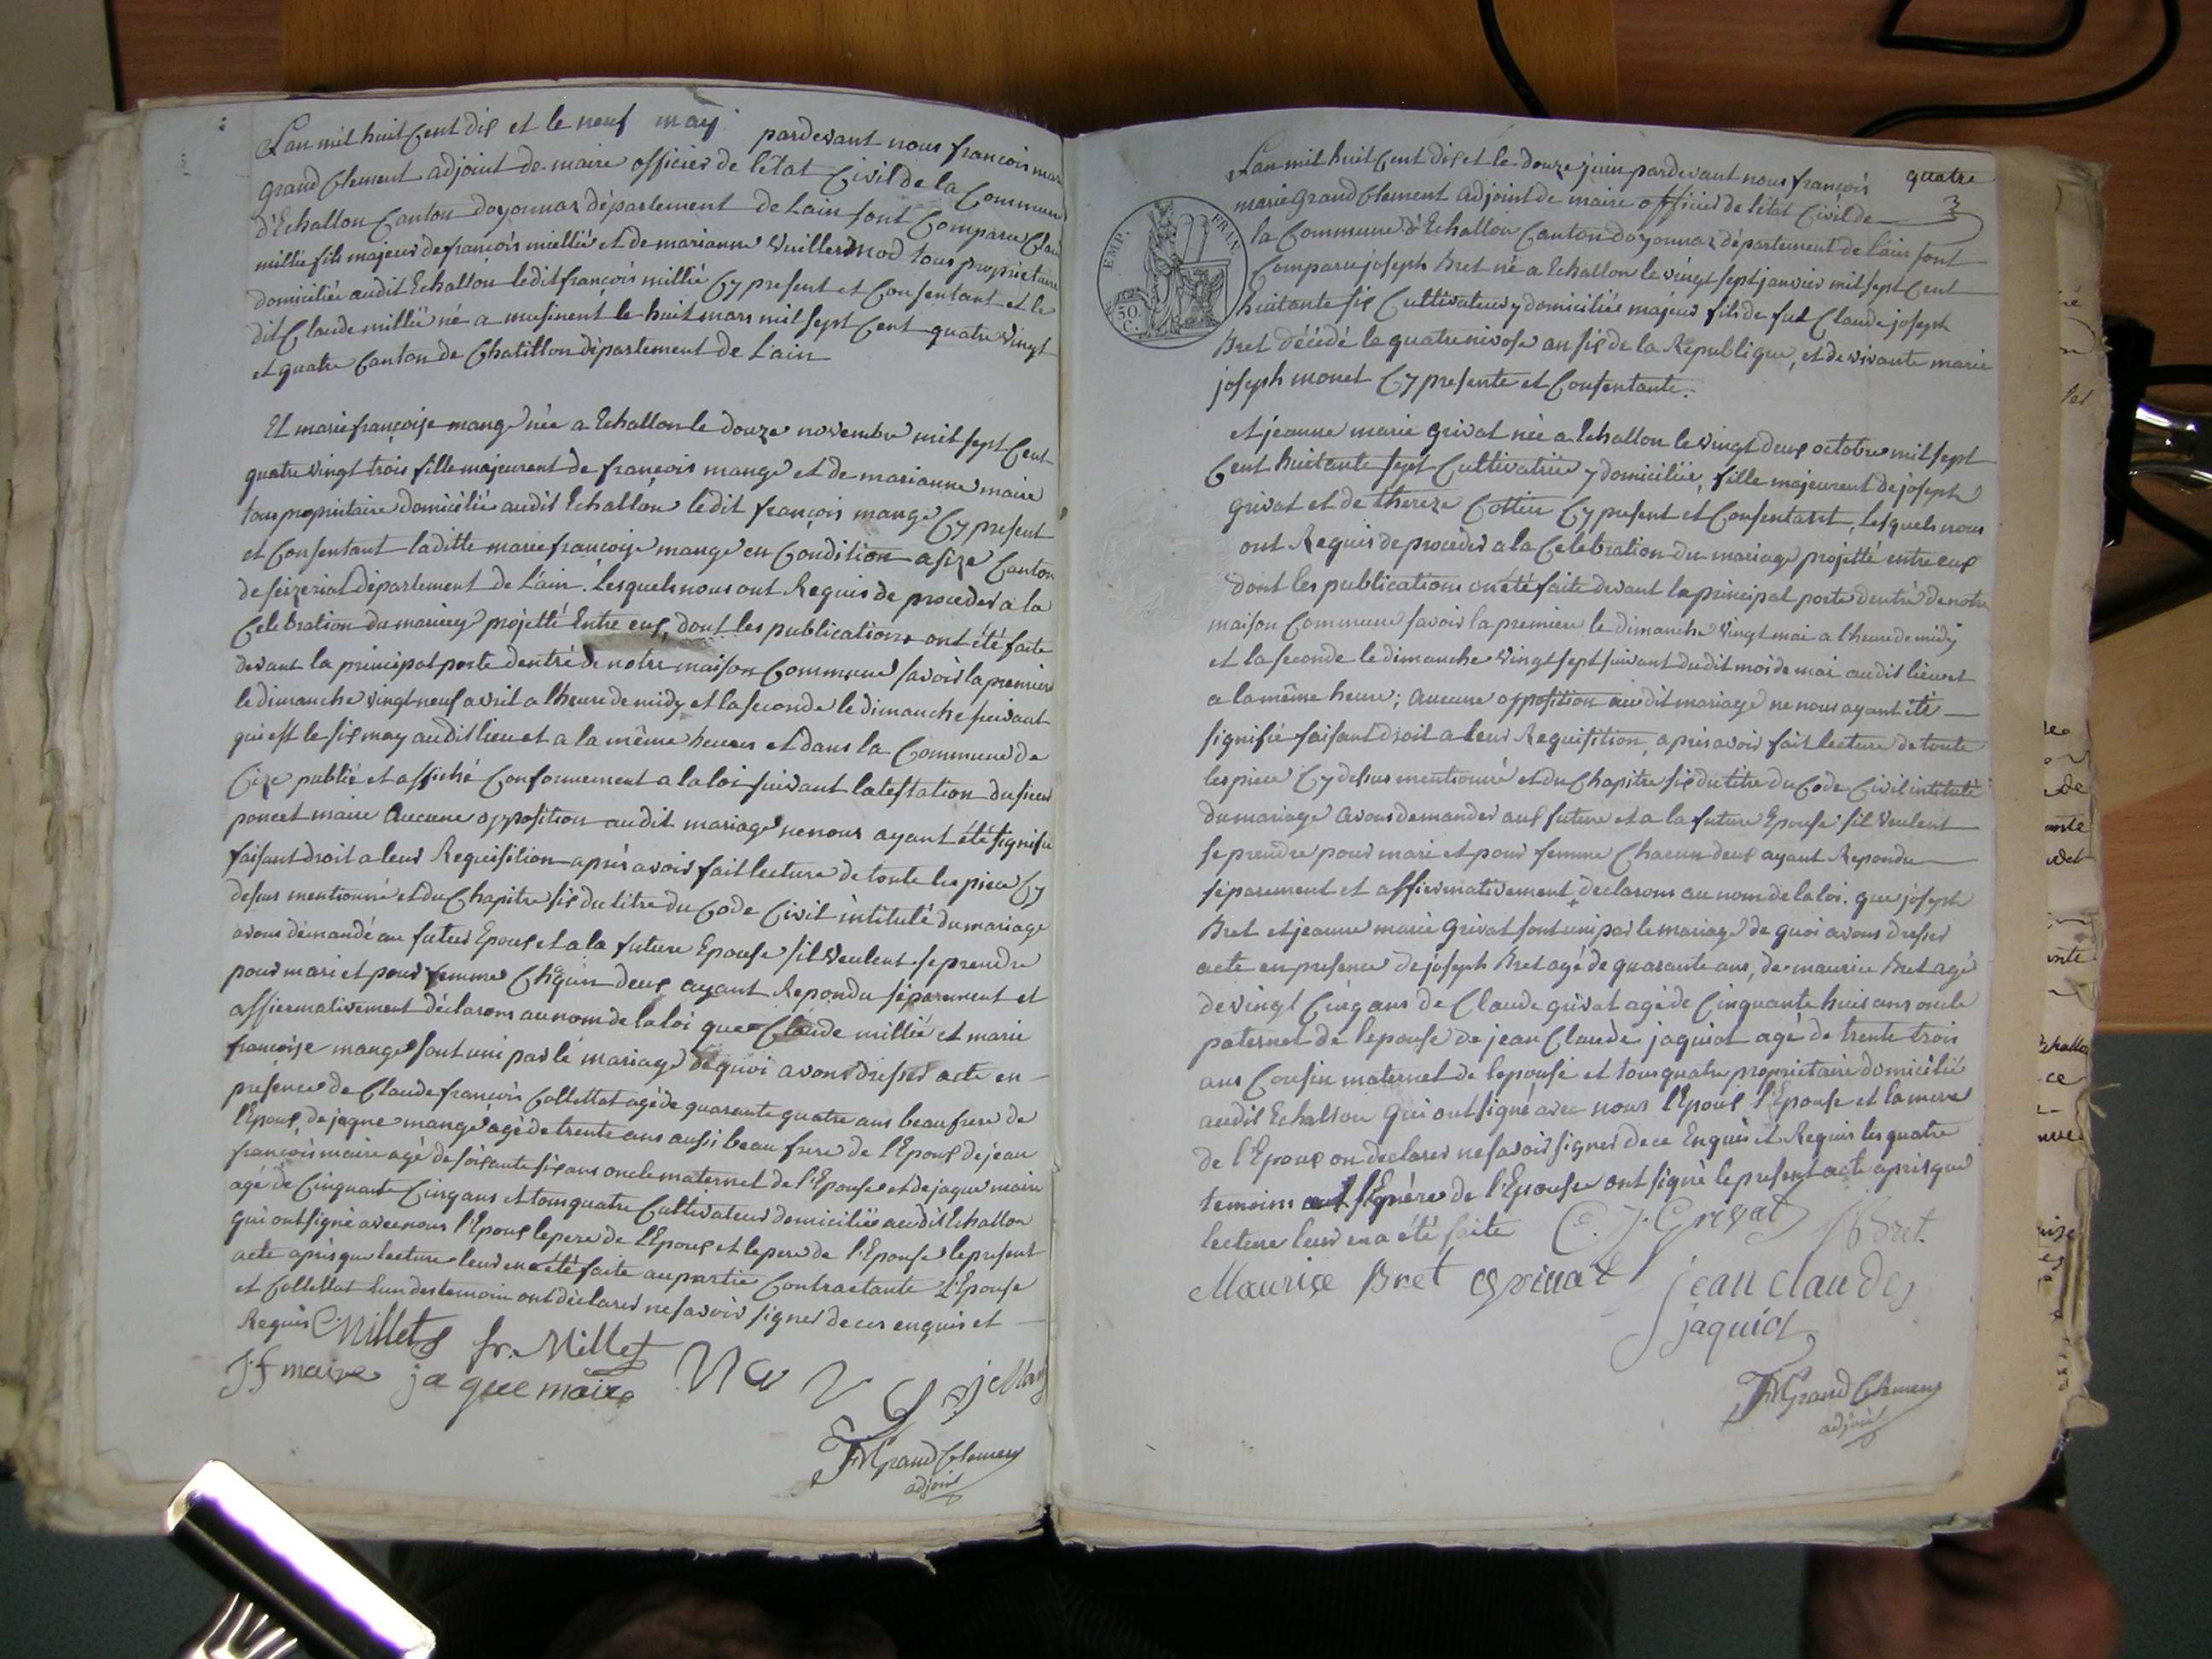 Lan mil huit Cent dix et le neuf may pardevant nous francois marie
grand Clement adjoint de maire officier de l'état Civil de la Commune
d'Echallon Canton doyonnas département de Lain sont Comparu Claude
millié fils majeur de francois miellié et de marianne Vuillermod tous propriétaire
domiciliée audit Echallon ledit françois millié Cy present et Consentant et le
dit Claude millié né a musinent le huit mars mil sept Cent quatre vingt
et quatre Canton de Chatillon département de Lain
Et marie françoise mange née a Echallon le douze novembre mil sept Cent
quatre vingt trois fille majeurent de francois mange et de marianne maire
tous propriétaire domicilié audit Echallon ledit françois mange Cy present
et Consentant laditte marie francoise mange en Condition a size Canton
de seizeriat département de Lain. Lesquels nous ont Requis de proceder a la
Celebration du mariage projetté Entre eux, dont les publications ont été faite
devant la principal porte dentré de notre maison Commune savoir la premier
le dimanche vingt neuf avril a lheure de midy et la seconde le dimanche suivant
qui est le six may audit lieu et a la même heure et dans la Commune de
Cize publié et affiché Conformement a la loi suivant latestation du sieur
poncet maire Aucune opposition audit mariage ne nous ayant été signifié
faisant droit a leur Requisition après avoir fait lecture de toute les piece Cy
desus mentionné et du Chapitre six du titre du Code Civil intitulé du mariage
avons demandé au futur Epoux et a la future Epouse sil veulent se prendre
pour mari et pour femme Chaqun deux ayant Repondu séparement et
affiermativement déclarons au nom de la loi que Claude millié et marie
francoise mange sont uni par lé mariage de quoi avons dresser acte en
présence de Claude francois Collettat agé de quarente quatre ans beau frere de
l'Epoux, de jaque mange agé de trente ans aussi beau frere de l'Epoux de jean
francois maire agé de soixante six ans oncle maternet de l'Epouse et de jaque maire
agé de Cinquante Cinq ans et tous quatre Cultivateur domiciliée audit Echallon
qui ont signé avec nous l'Epoux le pere de l'Epoux et le pere de l'Epouse le present
acte après que lecture leur en a été faite au partie Contractante L'Epouse
et Collettat lun des temoin ont déclarer ne savoir signer de ces enquis et
Requis C. Millet fr. Millet
J f maire jaque maire
FM Grand Clement
adjoint
quatre
3
EMP. FRAN.
50 C.
Lan mil huit Cent dix et le douze juin pardevant nous françois
marie Grand Clement Adjoint de maire officier de l'état Civil de
la Commune d'Echallon Canton doyonnaz département de Lain sont
Comparu joseph Bret né a Echallon le vingt sept janvier mil sept Cent
huitante six Cultivateur y domiciliée majeur fils de fut Claude joseph
Bret décédé le quatre nivose an six de la République, et de vivante marie
joseph monet Cy presente et Consentante.
et jeanne marie grivat née a Echallon le vingt deux octobre mil sept
Cent huitante sept Cultivatrice y domiciliée, fille majeurent de joseph
grivat et de thereze Cottier Cy present et Consentant, Lesquels nous
ont Requis de proceder a la Celebration du mariage projetté entre eux
dont les publications on été faite devant la principal porte dentré de notre
maison Commune savoir la premiere le dimanche vingt mai a lheure de midy
et la seconde le dimanche vingt sept suivant dudit mois de mai audit lieu et
a la même heure; Aucune opposition audit mariage ne nous ayant été
signifié faisant droit a leur Requisition, après avoir fait lecture de toute
les piece Cy desus mentionné et du Chapitre six du titre du Code Civil intitulé
du mariage avons demander aux future et a la future Epouse sil veulent
se prendre pour mari et pour femme Chacun deux ayant Repondu
séparement et affiermativement declarons au nom de la loi. que joseph
Bret et jeanne marie Grivat sont uni par le mariage de quoi avons dresser
acte en presence de joseph Bret agé de quarante ans, de maurice Bret agé
de vingt Cinq ans de Claude grivat agé de Cinquante huis ans oncle
paternet de lepouse de jean Claude jaquiot agé de trente trois
ans Cousin maternet de lepouse et tous quatre proprietaire domicilié
audit Echallon qui ont signé avec nous l'Epoux l'Epouse et la mere
de l'Epoux on declarer ne savoir signer de ce Enquis et Requis les quatre
temoins de l'Epouse ont signé le present acte après que
lecture leur en a été faite C. J. Grivat J Bret
Maurice Bret Grivat jean claude
jaquiot
FM Grand Clement
adjoint